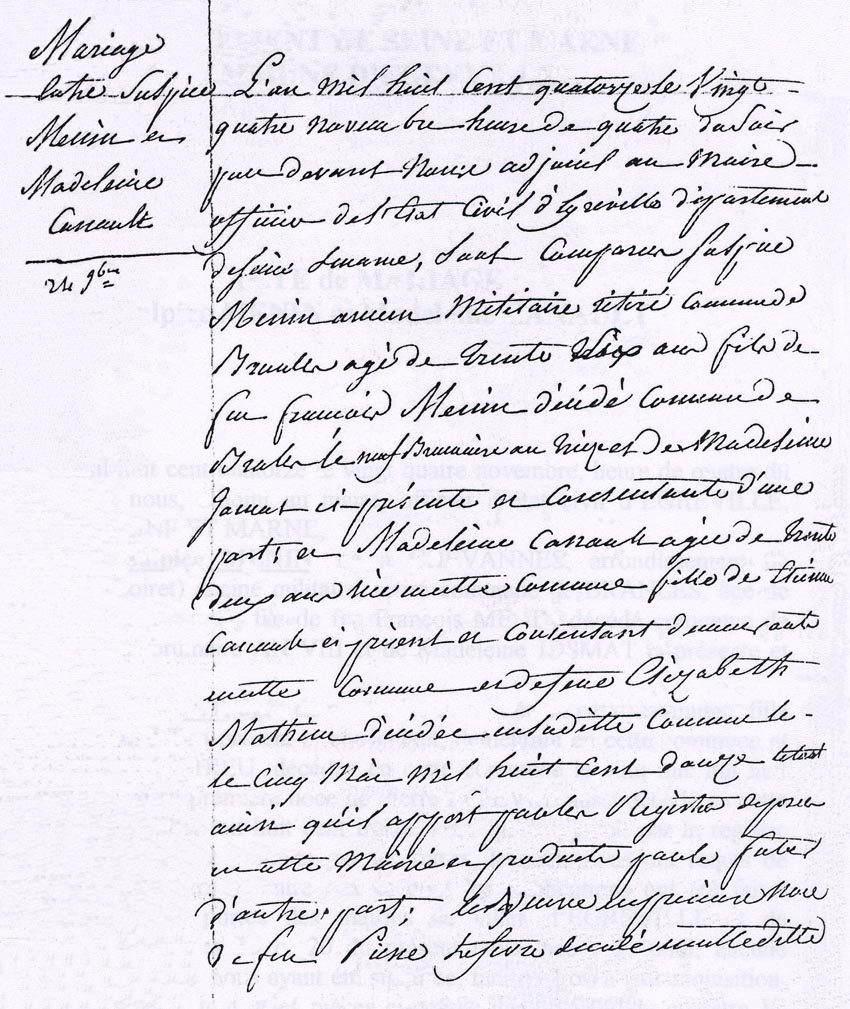 Mariage
Entre Sulpice
Menin et
Madeleine
Canault
24 9bre
L'an mil huit Cent quatorze le Vingt
quatre novembre heure de quatre du Soir
par devant Nous adjoint au Maire
officier de l'Etat Civil d'Egreville département
de Seine et marne, Sont Comparus Sulpice
Menin ancien Militaire retiré Commune de
Branles agé de trente ans fils de
feu francois Menin décédé Commune de
Branles le neuf Brumaire an et de Madeleine
Jamat ci présente et Consentante d'une
part; et Madeleine Canault agée de trente
deux ans née en cette Commune fille de Etienne
Canault ci présent et Consentant demeurant
en cette Commune et de feue Elizabeth
Mathieu décédée en la ditte Commune le
le Cinq Mai Mil huit Cent douze le tout
ainsi qu'il appert par les Registres déposés
en cette Mairie et produits par les futurs
d'autre part; en première Noce
de feu Pierre Lefevre décédé en cette ditte